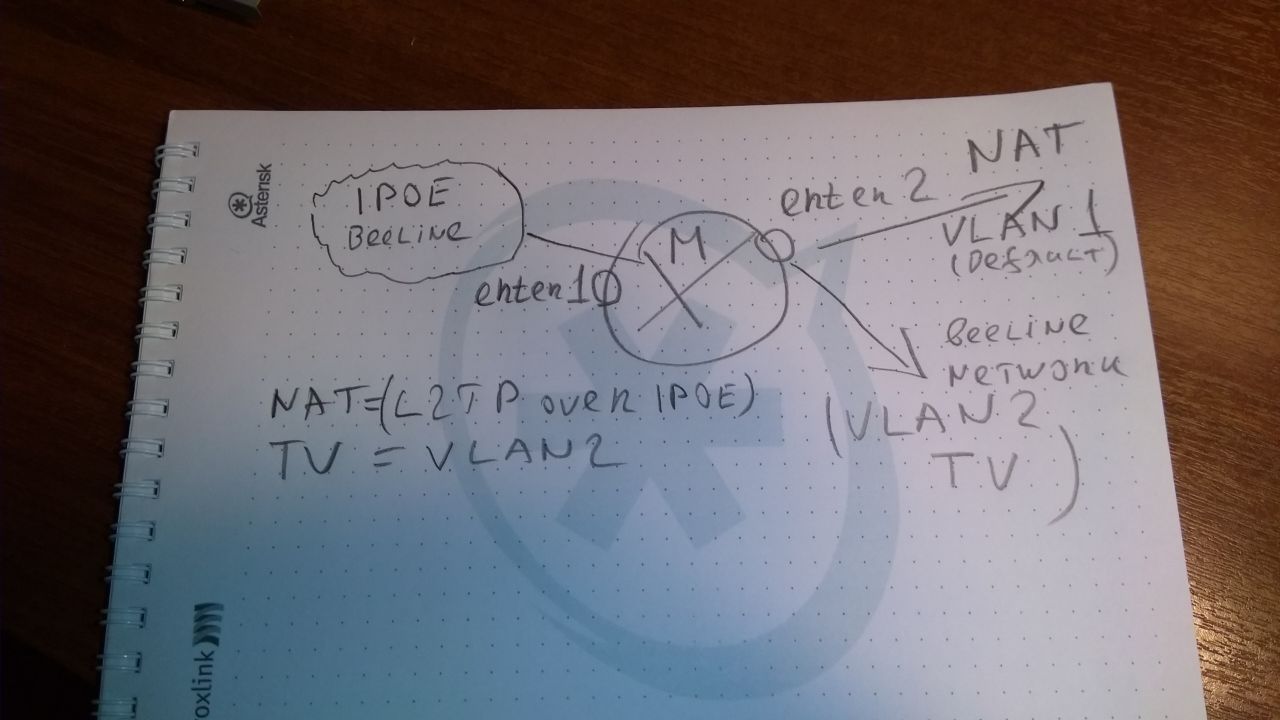 Asterisk
IPOE
BEELINE
M
enter 1
enter 2
NAT
VLAN 1
(Default)
BEELINE
NETWORK
(VLAN 2
TV)
NAT=(L2TP over IPOE)
TV = VLAN2
oxlink